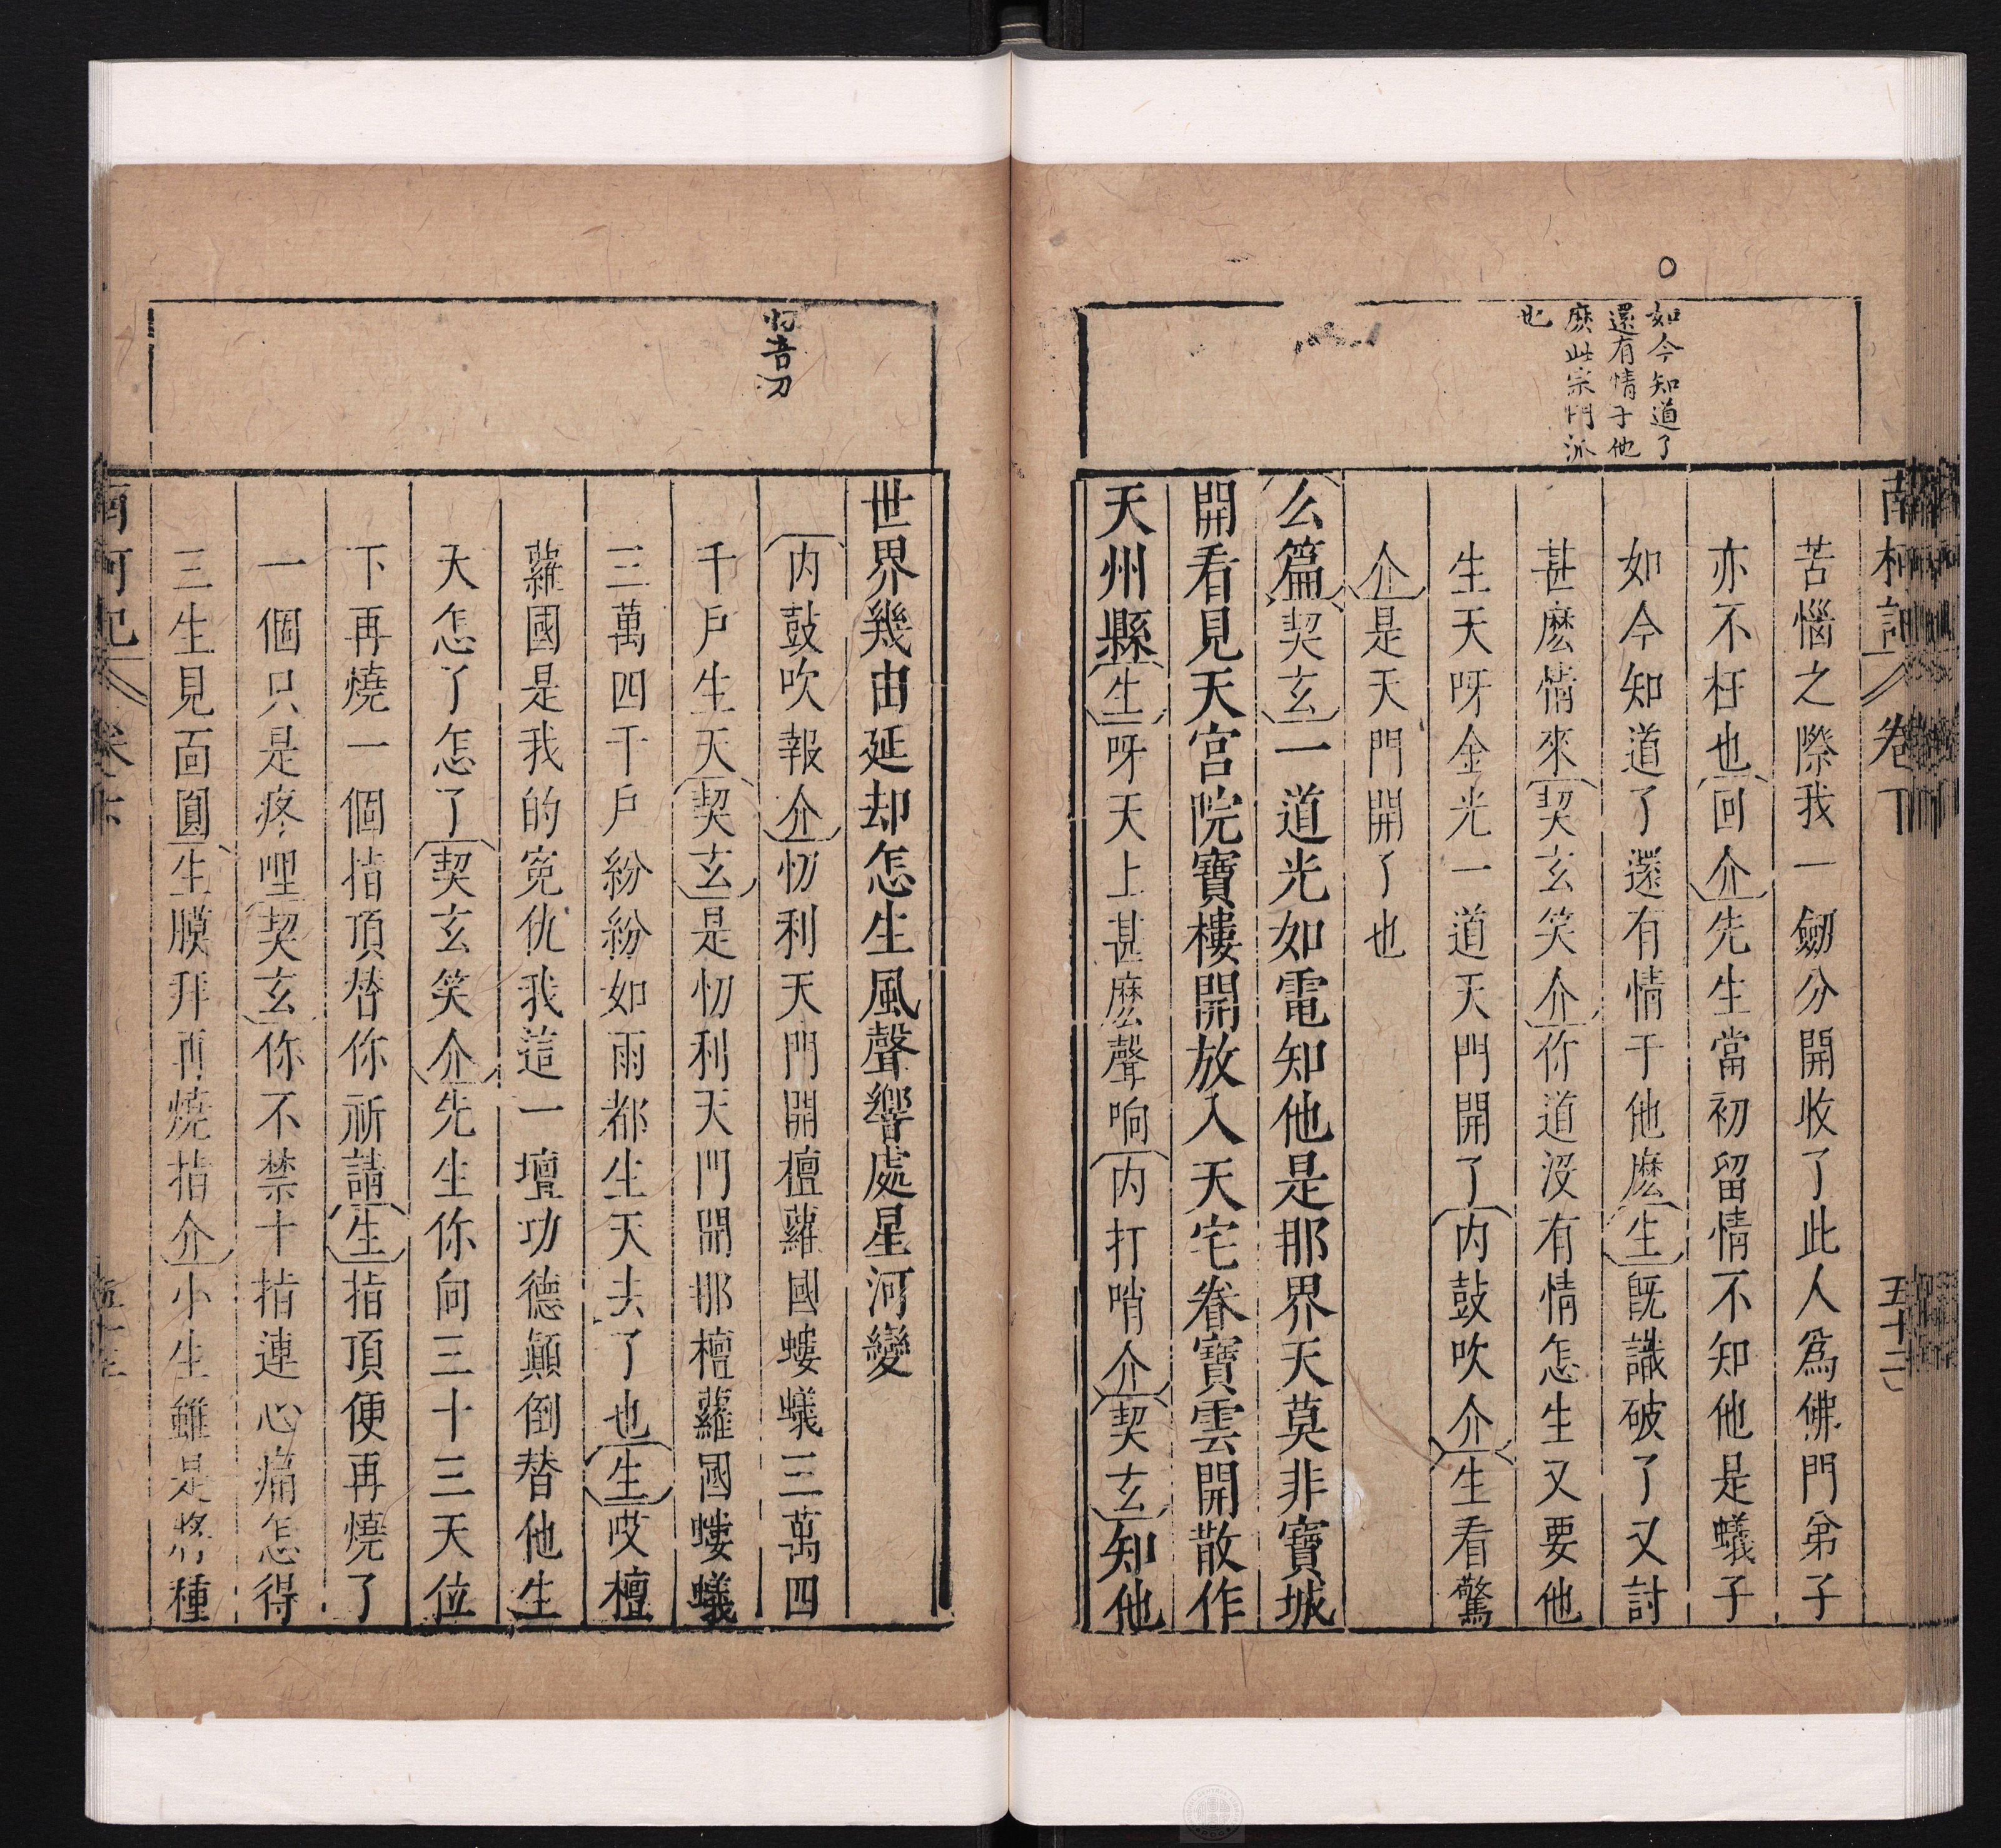 南柯記
卷下
五十二
如今知道了
還有情于他
麽此宗門派
也
苦惱之際我一劒分開收了此人爲佛門弟子
亦不枉也回介先生當初留情不知他是蟻子
如今知道了還有情于他麽生旣識破了又討
甚麽情來契玄笑介你道沒有情怎生又要他
生天呀金光一道天門開了内鼓吹介生看驚
介是天門開了也
么篇契玄一道光如電知他是那界天莫非寶城
開看見天宮院寶樓開放入天宅眷寶雲開散作
天州縣生呀天上甚麽聲响内打哨介契玄知他
世界幾由延却怎生風聲響處星河變
内鼓吹報介忉利天門開檀蘿國螻蟻三萬四
千戶生天契玄是忉利天門開那檀蘿國螻蟻
三萬四千戶紛紛如雨都生天去了也生哎檀
蘿國是我的寃仇我這一壇功德顚倒替他生
天怎了怎了契玄笑介先生你向三十三天位
下再燒一個指頂替你祈請生指頂便再燒了
一個只是疼哩契玄你不禁十指連心痛怎得
三生見面圓生膜拜再燒指介小生雖是將種
南柯記